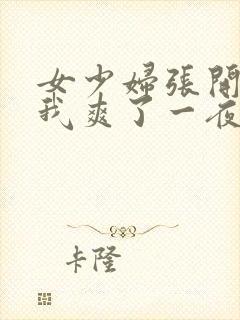 女少婦張開
我爽了一夜
卡隆